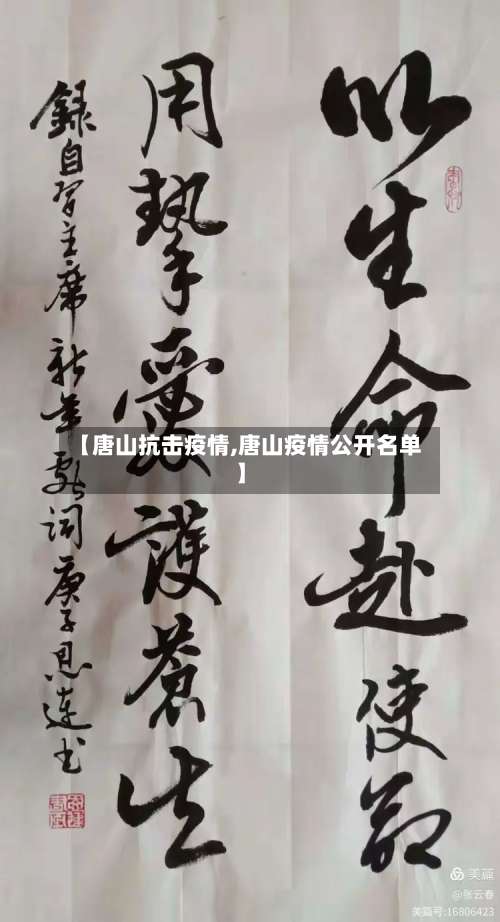 以生命赴使命
用挚愛護蒼生
錄自習主席新年贺词庚子恩连书
【唐山抗击疫情,唐山疫情公开名单
】
美篇
@张云春
美篇号:16806423